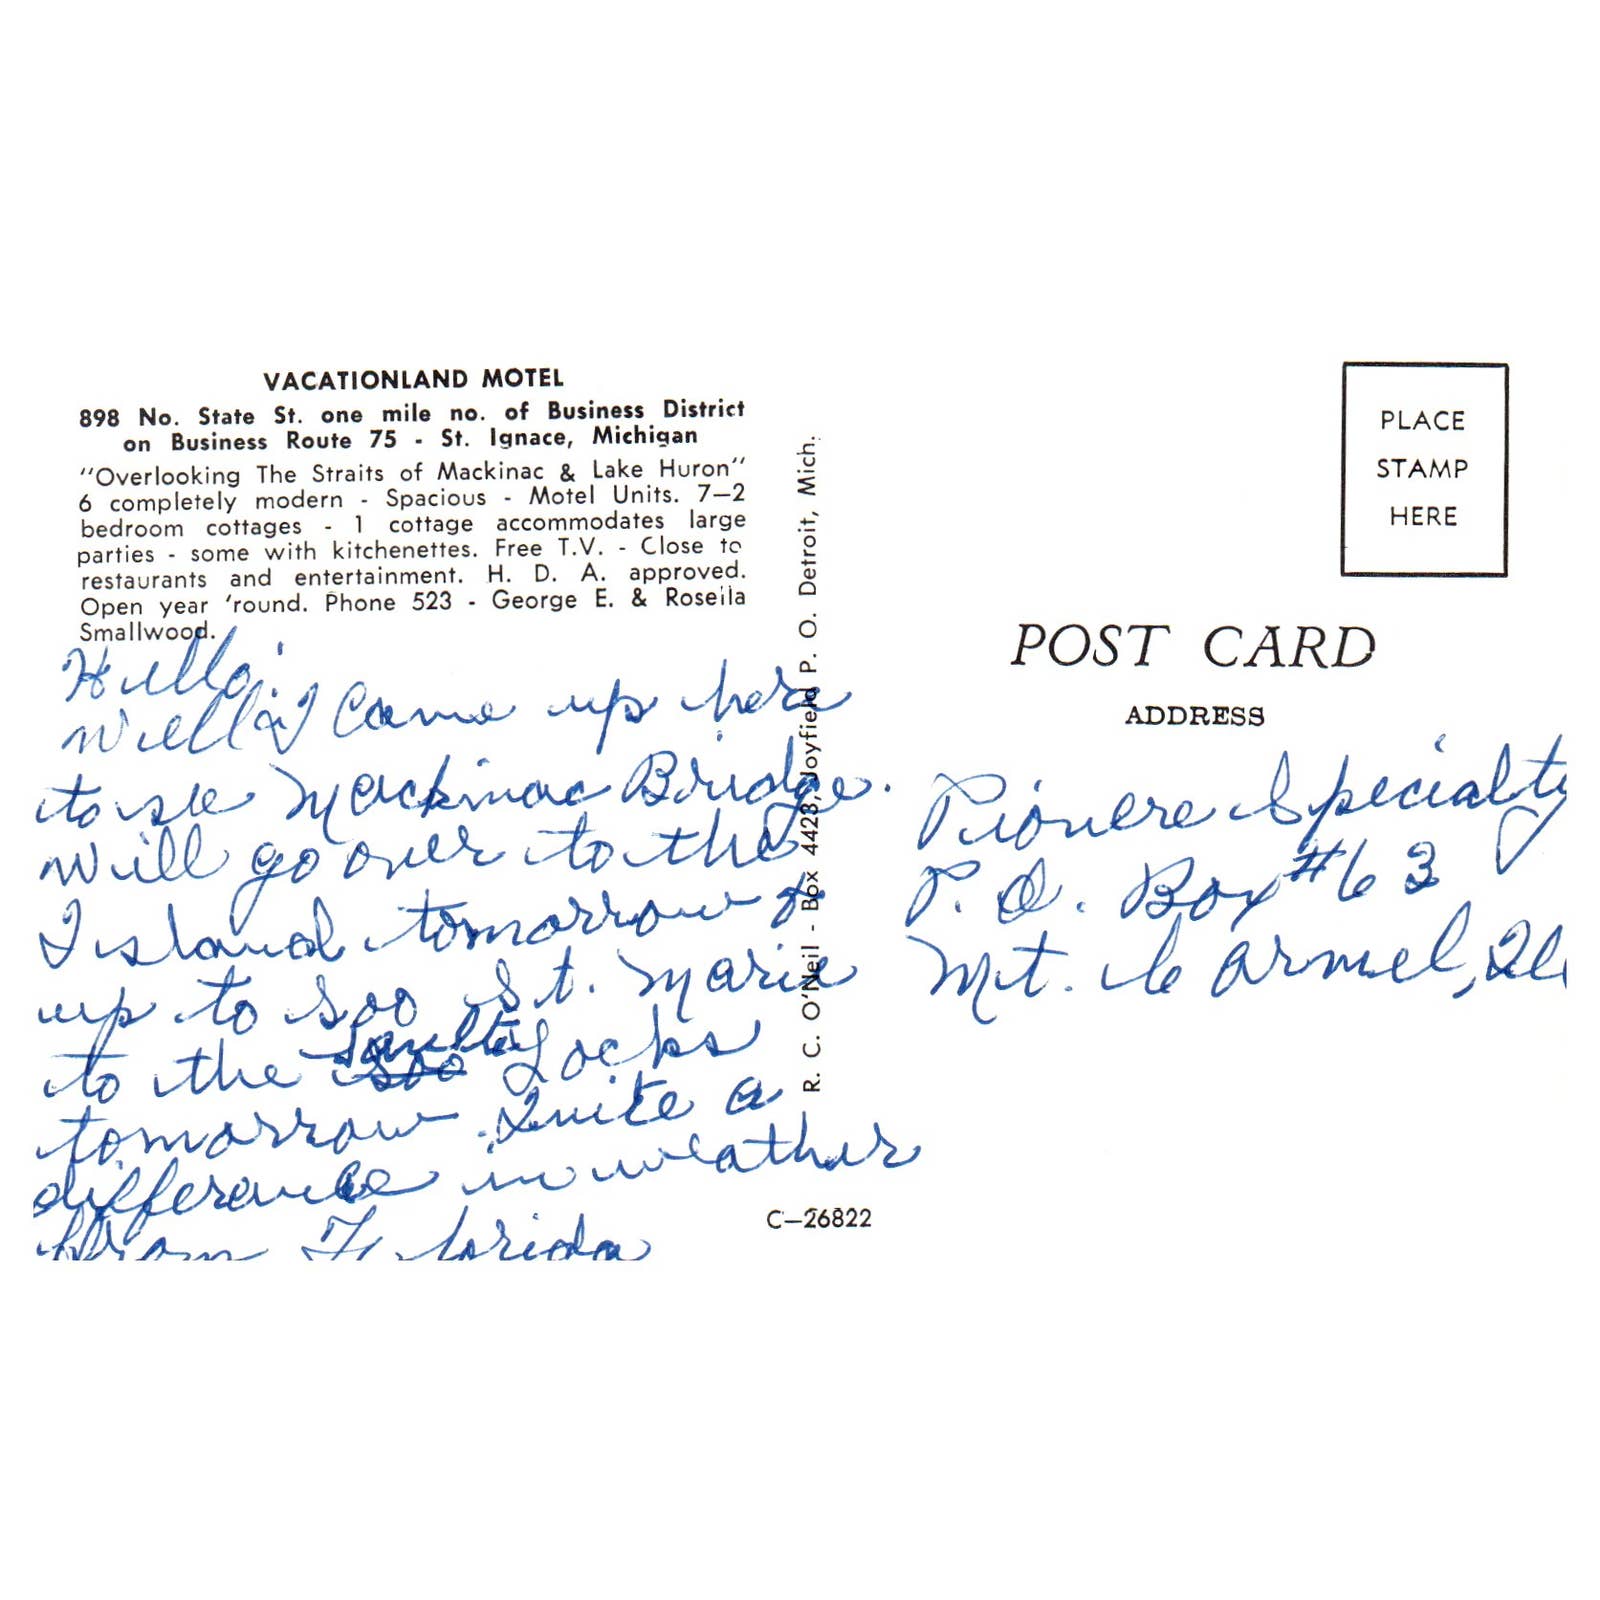 VACATIONLAND MOTEL
898 No. State St. one mile no. of Business District
on Business Route 75 - St. Ignace, Michigan
"Overlooking The Straits of Mackinac & Lake Huron"
6 completely modern - Spacious - Motel Units. 7-2
bedroom cottages - 1 cottage accommodates large
parties - some with kitchenettes. Free T.V. - Close to
restaurants and entertainment. H. D. A. approved.
Open year 'round. Phone 523 - George E. & Rosella
Smallwood.
Hello:
Well I came up here
to see Mackinac Bridge.
Will go over to the
Island tomorrow &
up to Soo St. Marie
to the Saulte Locks
tomorrow. Quite a
difference in weather
from Florida
R. C. O'Neil - Box 4428, Joyfield P. O. Detroit, Mich.
C-26822
PLACE
STAMP
HERE
POST CARD
ADDRESS
Pionere Specialty
P. O. Box #63
Mt. Carmel, Ill